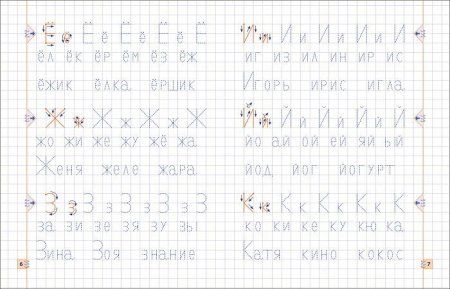 Ё ё Ё ё Ё ё Ё ё Ё
ёл ёк ёр ём ёз ёж
ёжик ёлка ёршик
Ж ж Ж ж Ж ж Ж
жо жи же жу жё жа
Женя желе жара
З з З з З з З з З
за зи зе зя зу зы
Зина Зоя знание
6
И и И и И и И и И
иг из ил ин ир ис
Игорь ирис игла
Й й Й й Й й Й й Й
йо ай ой ей яй ый
йод йог йогурт
К к К к К к К к К
ко ки ке ку кю ка
Катя кино кокос
7